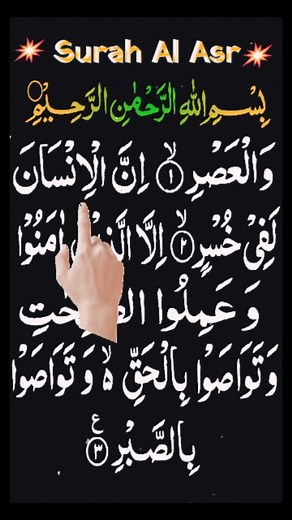 Surah Al Asr
بِسْمِ اللهِ الرَّحْمٰنِ الرَّحِيْمِ
وَالْعَصْرِ ۙ﴿١﴾ اِنَّ الْاِنْسَانَ
لَفِيْ خُسْرٍ ۙ﴿٢﴾ اِلَّا اٰمَنُوْا
وَ عَمِلُوا
وَتَوَاصَوْا بِالْحَقِّ ۙ۬ وَ تَوَاصَوْا
بِالصَّبْرِ ﴿٣﴾ ع